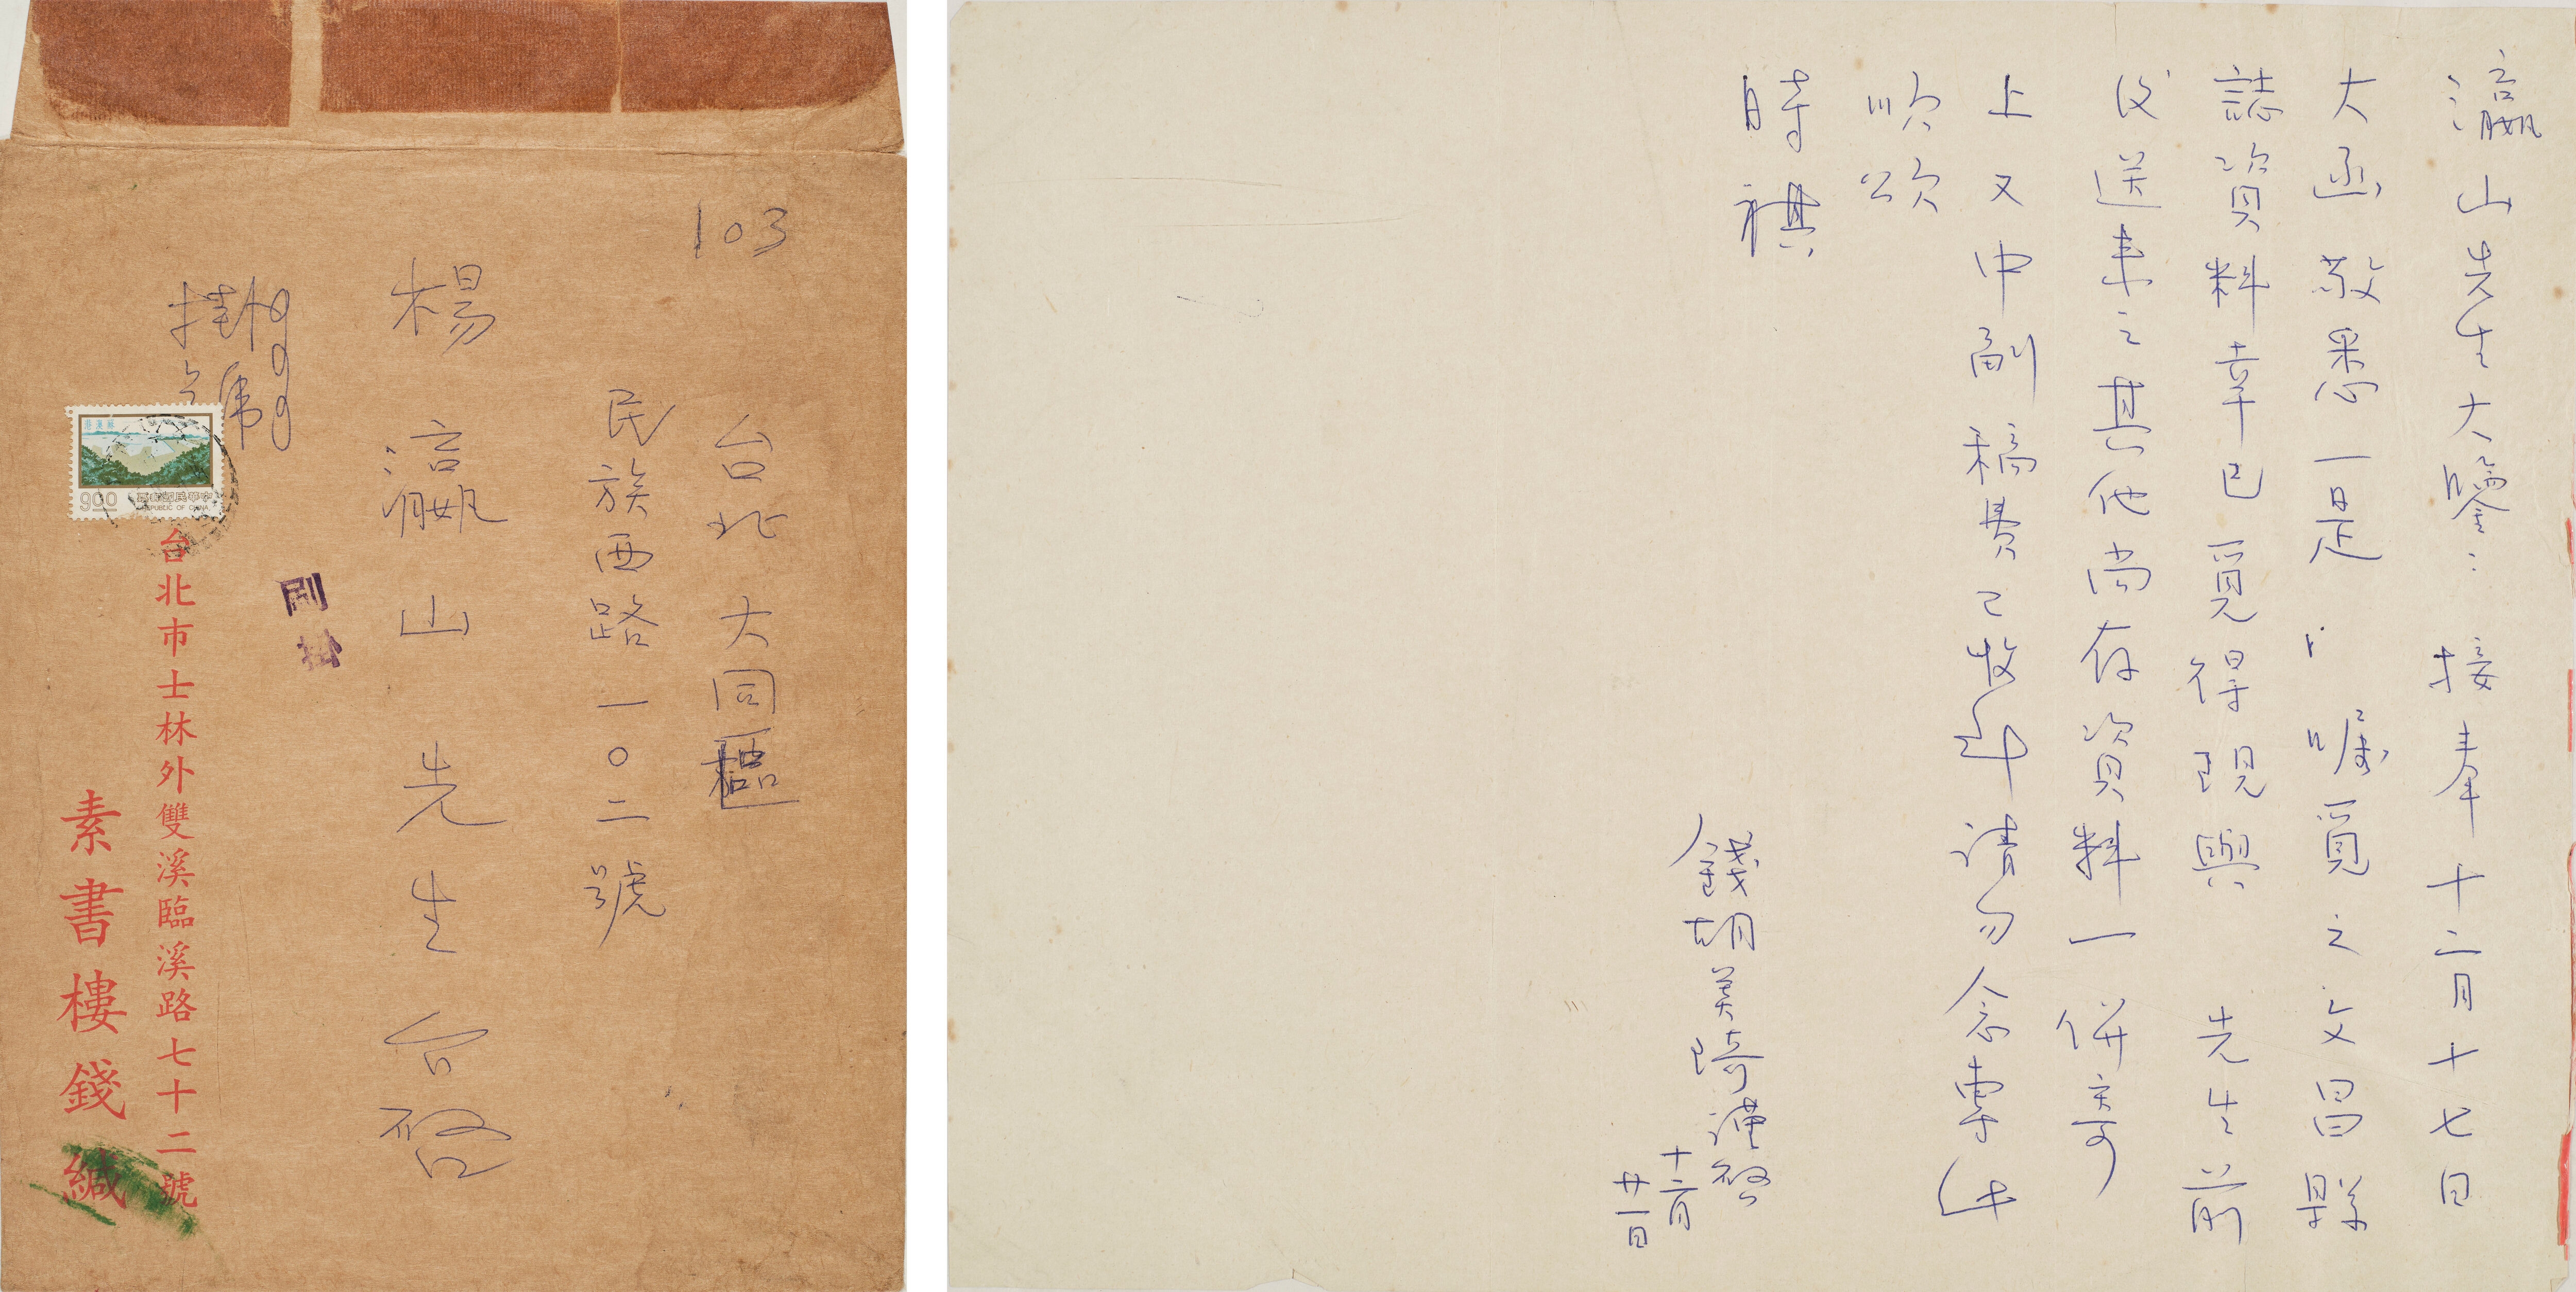 103
台北大同區
民族西路一〇二號
楊瀛山先生台啟
掛號
限掛
蘇澳港
900
中華民國郵票
REPUBLIC OF CHINA
台北市士林外雙溪臨溪路七十二號
素書樓錢緘
瀛山先生大鑒：接奉十二月十七日
大函敬悉一是 囑覓之文昌縣
誌資料幸已覓得現與 先生前
次送來之其他尚存資料一併寄
上又中副稿費已收到請勿念專此
順頌
時祺
錢胡美琦謹啟
十二月
廿一日